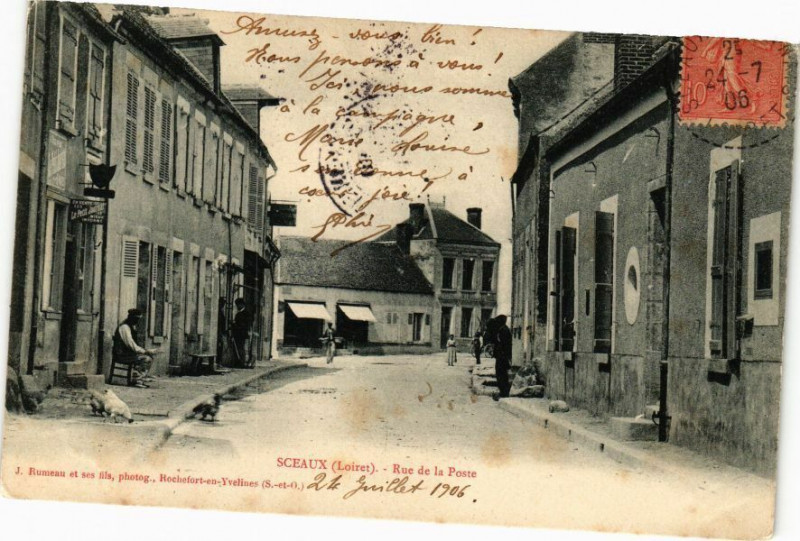 Amusez-vous bien !
Nous pensons à vous !
Ici nous sommes
à la campagne,
Marie Louise
s'en donne à
cœur joie !
25
24 - 7
06
10
SCEAUX (Loiret). - Rue de la Poste
J. Rumeau et ses fils, photog., Rochefort-en-Yvelines (S.-et-O.)
24 Juillet 1906.